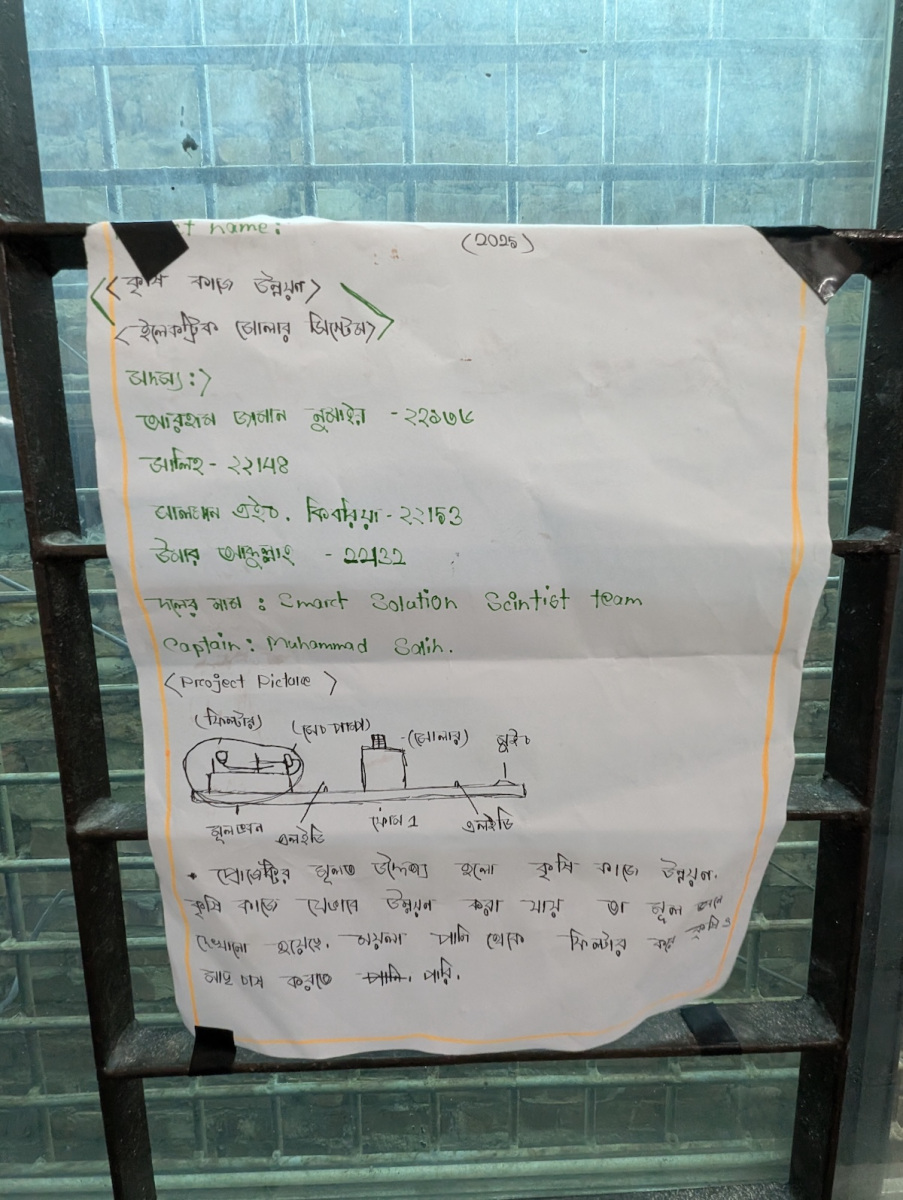 t name:
(2025)
<<কৃষি কাজে উন্নয়ণ>
<ইলেকট্রিক সোলার সিস্টেম>>
সদস্য:>
আরহাম জামান নুমাইর -
সালিহ - ২২148
আলসান এইচ. কিবরিয়া - ২২153
উমার আব্দুল্লাহ - 22132
দলের নাম : Smart Solution Scintist team
Captain: Muhammad Salih.
<Project Picture>
(ফিল্টার) (মেঠ পাম্প) (সোলার) সুইচ
মূলভোল এলইডি ফোম 1 এলইডি
• প্রোজেক্টির মূলত উদ্দেশ্য হলো কৃষি কাজে উন্নয়ণ.
কৃষি কাজে যেভাবে উন্নয়ণ করা যায় তা মূল ভাবে
দেখানো হয়েছে. ময়লা পানি থেকে ফিল্টার করে কৃষি ও
মাছ চাষ করতে পারি.